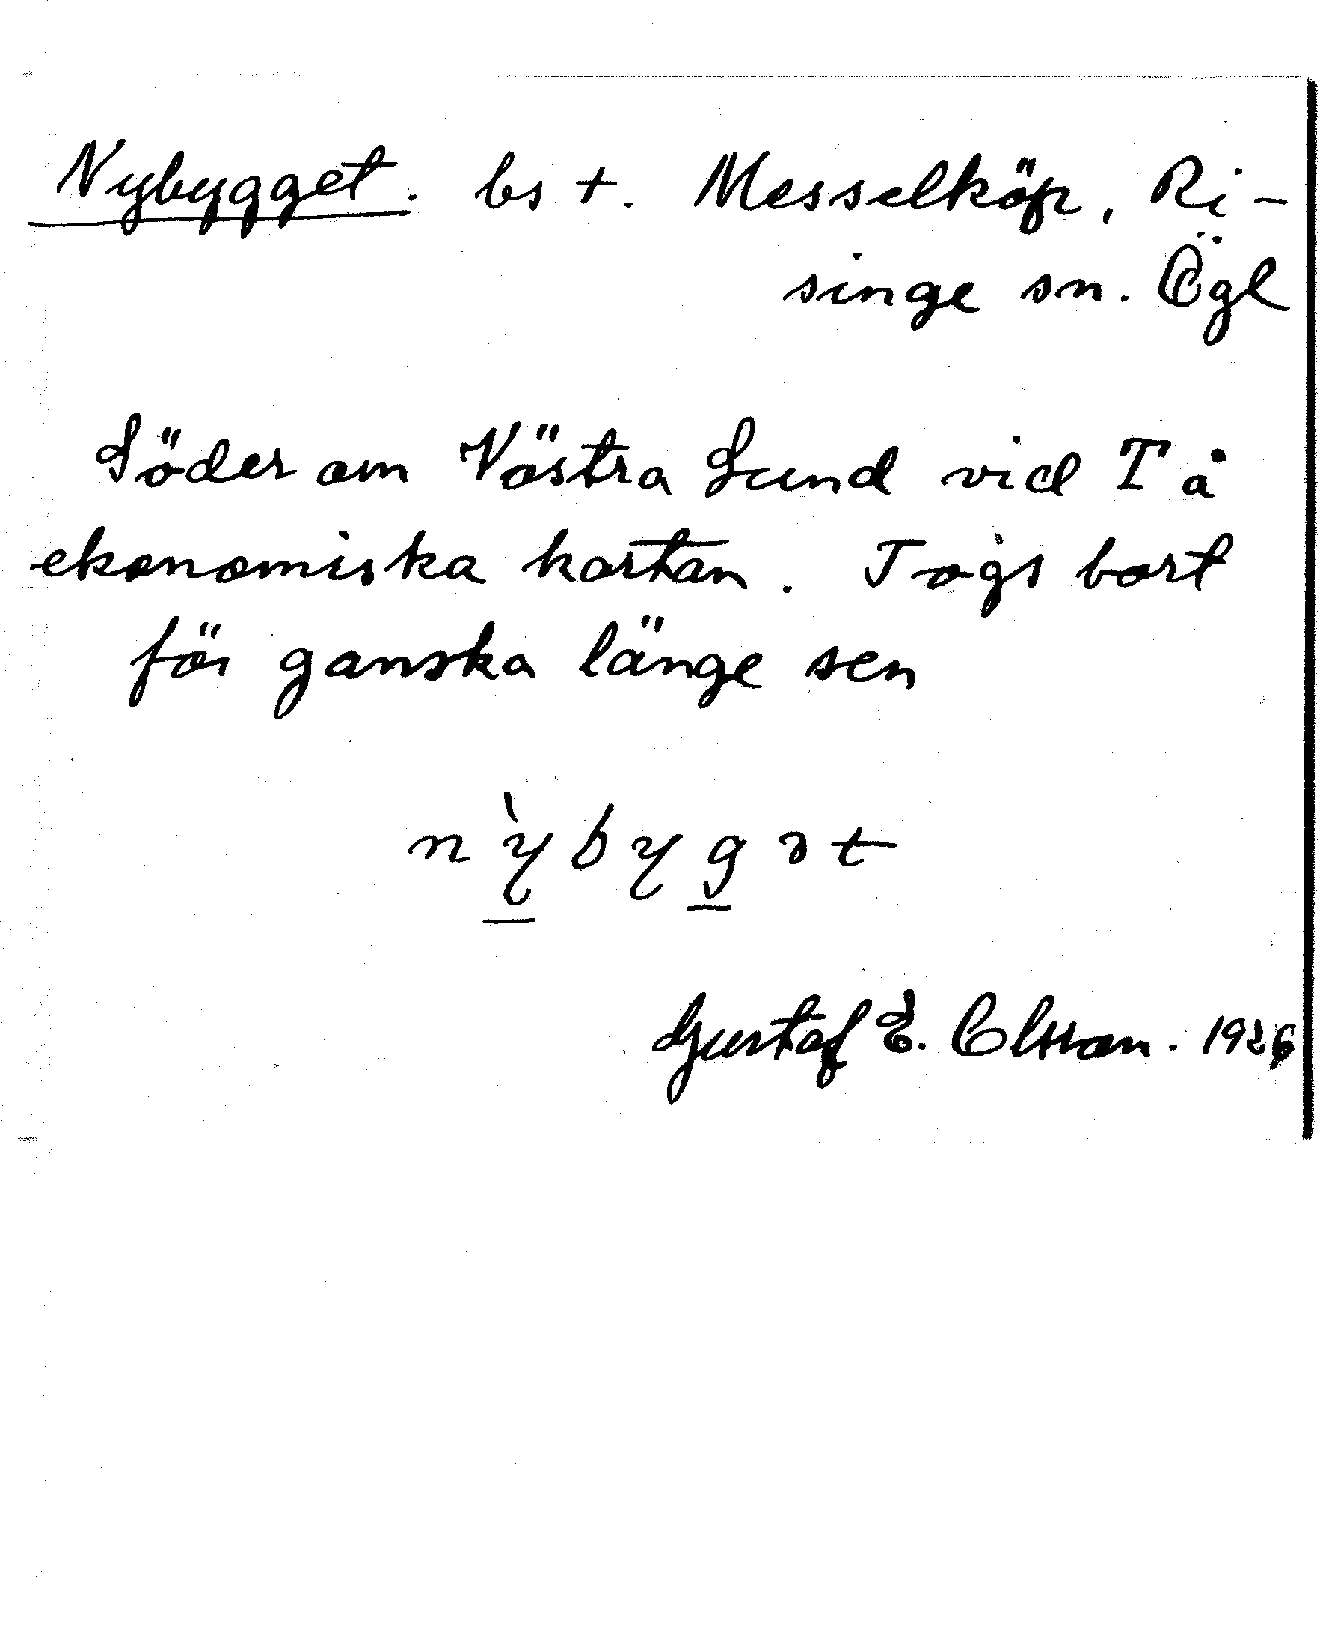 Nybygget. bs +. Messelköp, Ri-
singe sn. Ögl
Söder om Västra Lund vid T å
ekonomiska kartan. Togs bort
för ganska länge sen
nỳbygət
Gustaf E. Olsson. 1926